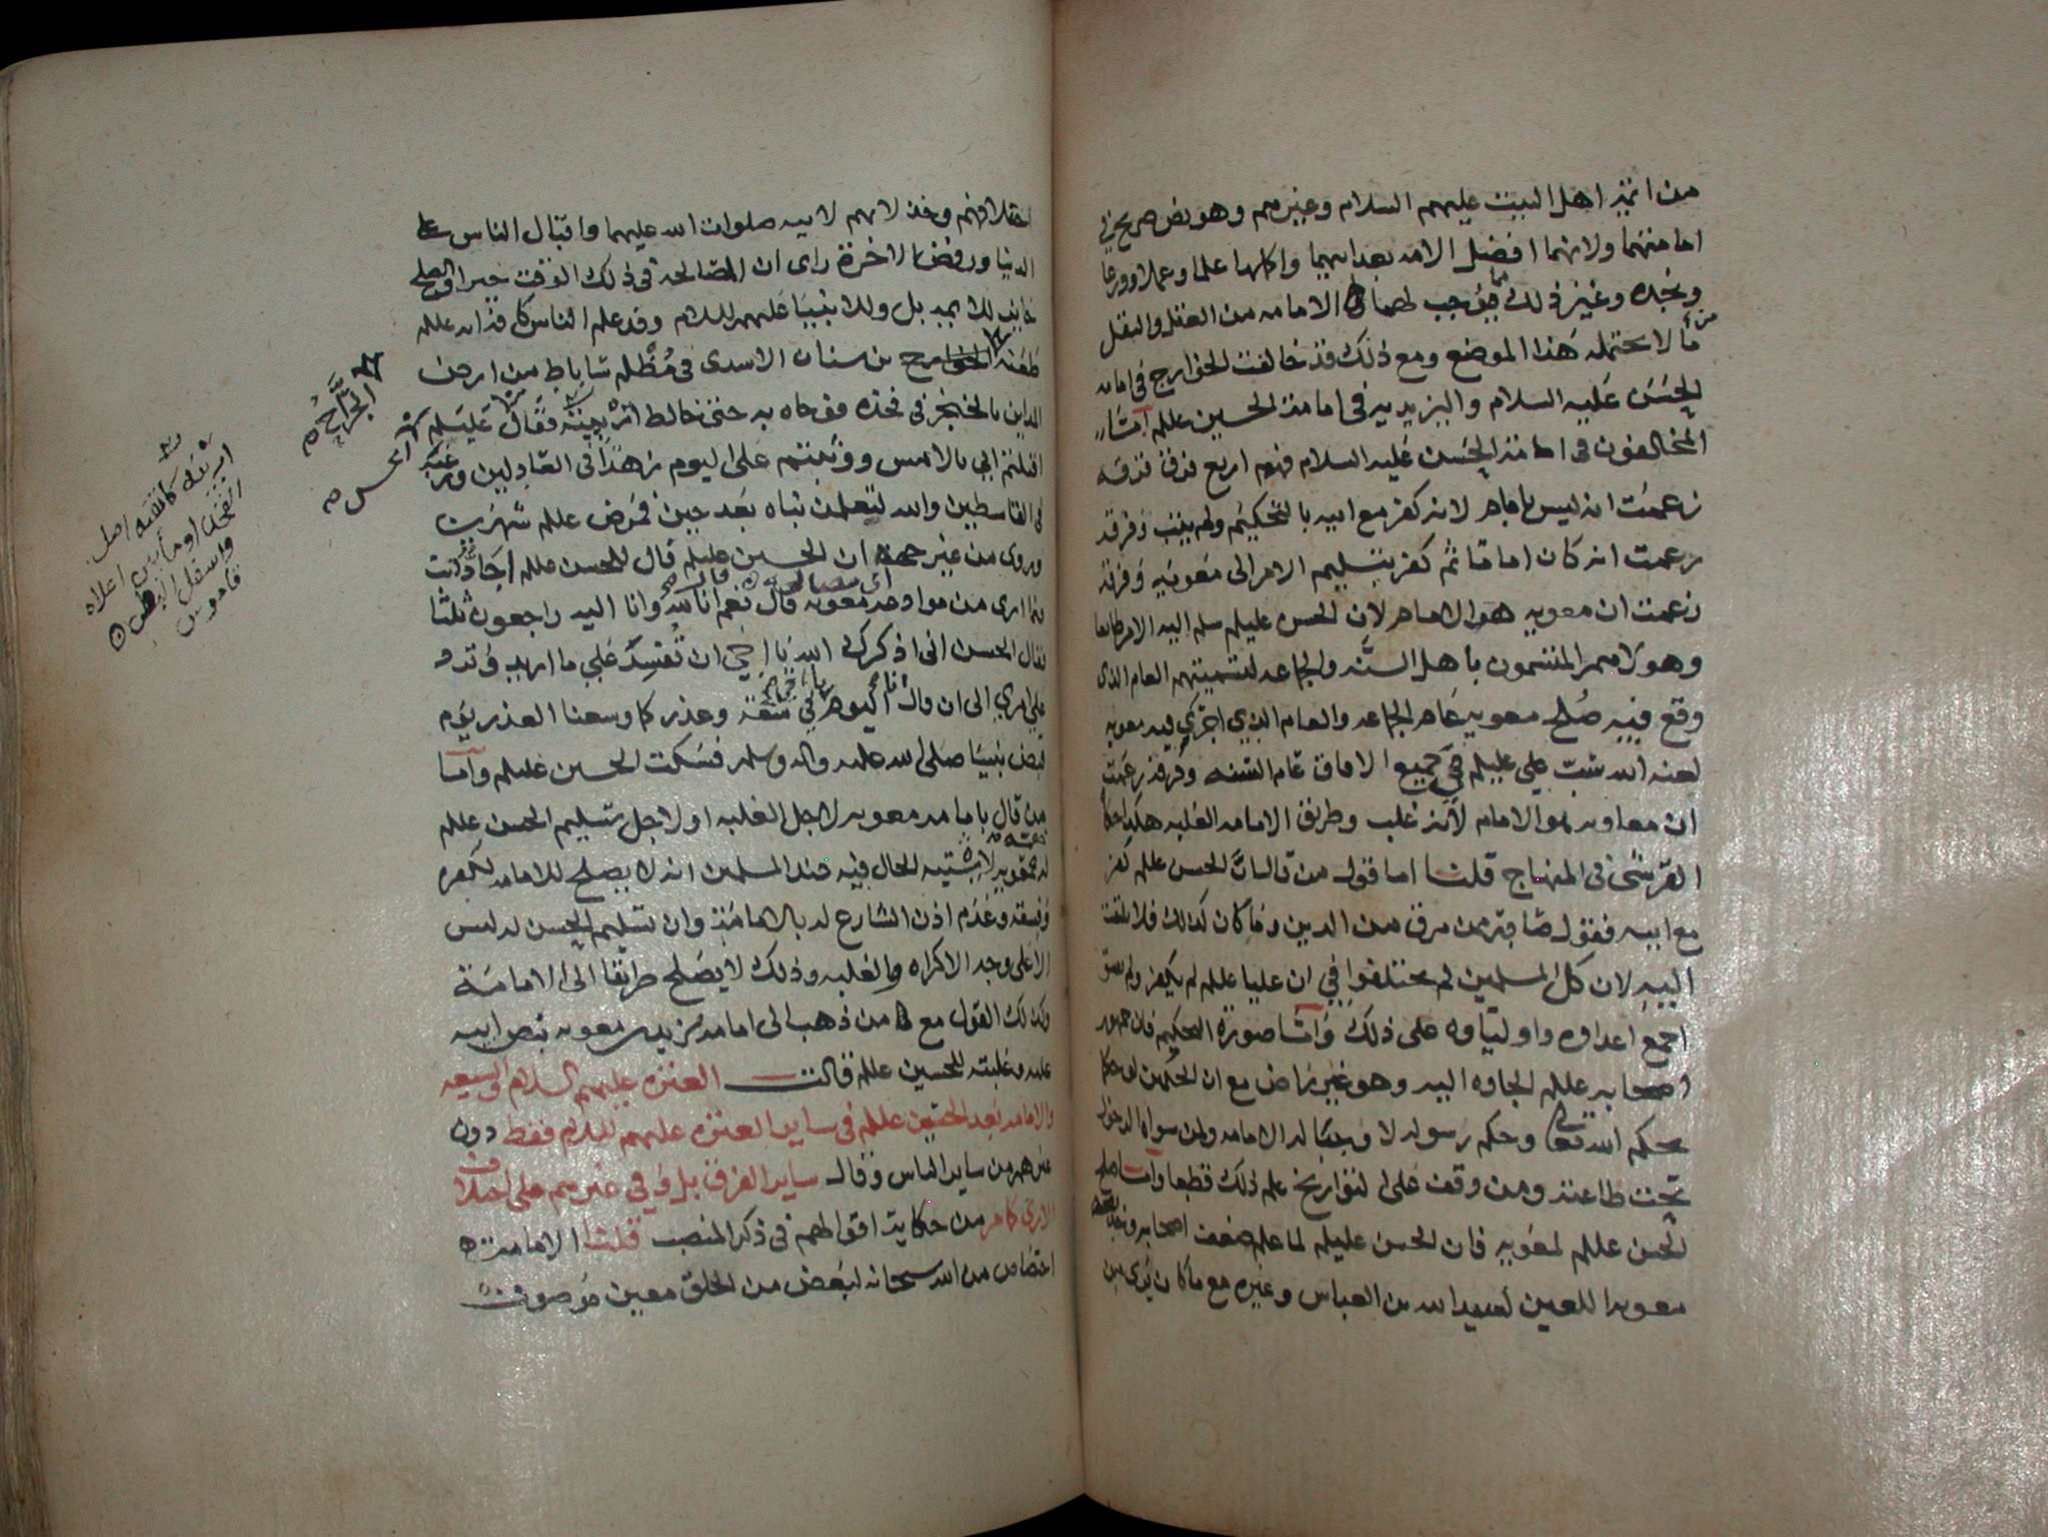 من ائمة اهل البيت عليهم السلام وغيرهم وهو نص صريح في
امامتهما ولانهما افضل الامة بعد ابيهما واكملها علما وعملا وورعا
ونجده وغير ذلك مما يوجب لهما الامامه من العقل والنقل
ما لا يحتمله هذا الموضع ومع ذلك قد خالفت الخوارج في امامه
الحسن عليه السلام واليزيديه في امامة الحسين عللم امّا
المخالفون في امامة الحسن عليه السلام فهم اربع فرق فرقه
زعمت انه ليس بامام لانه كفر مع ابيه بالتحكيم ولم يتب وفرقه
زعمت انه كان اماما ثم كفر بتسليم الامر الى معويه وفرقة
زعمت ان معويه هو الامام لان الحسن عليلم سلم اليه الامر طايعا
وهولا هم المتسمون باهل السنه والجماعه لتسميتهم العام الذي
وقع فيه صلح معويه عام الجماعه والعام الذي اجرى فيه معويه
لعنه الله سب علي عليلم في جميع الافاق عام السنه وفرقة زعمت
ان معاويه هو الامام لانه غلب وطريق الامامه الغلبه هكذا حكاه
القرشي في المنهاج قلنا اما قول من قال ان الحسن عللم كفر
مع ابيه فقول صادر ممن مرق من الدين وما كان كذلك فلا يلتفت
اليه لان كل المسلمين لم يختلفوا في ان عليا عللم لم يكفر ولم يفسق
اجمع اعداوه واولياوه على ذلك وامّا صورة التحكيم فان جمهور
اصحابه عللم الجاوه اليه وهو غير راض مع ان الحكمين لو حكما
بحكم الله تعالى وحكم رسوله لاوجبا له الامامه ولمن سواه الدخول
تحت طاعته ومن وقف على التواريخ علم ذلك قطعا وامّا صلح
الحسن عللم لمعويه فان الحسن عليلم لما علم ضعف اصحابه وخديعة
معويه اللعين لعبيد الله بن العباس وغيره مع ما كان يرى من
اختلافهم وخذلانهم لابيه صلوات الله عليهما واقبال الناس على
الدنيا ورفض الاخرة راى ان المصالحه في ذلك الوقت خير والصلح
جايز للايمه بل وللانبيا عليهم السلام وقد علم الناس كافه انه عللم
طعنه الجراح بن سنان الاسدي في مظلم ساباط من ارض
المداين بالخنجر في فخذه فوجاه به حتى خالط اربيته فقال عليلم
اقتلتم ابي بالامس ووثبتم علي اليوم زهدا في العادلين ورغبة
في القاسطين والله لتعلمن نباه بعد حين فمرض عللم شهرين
وروى من غير جهة ان الحسين عليلم قال للحسن عللم
معويه قال نعم انا لله وانا اليه راجعون ثلثا
فقال الحسن اني اذكرك الله يا اخي ان تفسد علي ما اريد وترد
علي امري الى ان قال انا اليوم في سعة وعذر كما وسعنا العذر يوم
قبض نبينا صلى الله عليه واله وسلم فسكت الحسين عليلم وامّا
من قال بامامه معويه لاجل الغلبه او لاجل تسليم الحسن عللم
لا يشتبه الحال فيه عند المسلمين انه لا يصلح للامامه لكفره
وفسقه وعدم اذن الشارع له بالامامة وان تسليم الحسن له ليس
الا على وجه الاكراه والغلبه وذلك لا يصلح طريقا الى الامامة
وكذلك القول مع من ذهب الى امامه يزيد بن معويه بنص ابيه
عليه وغلبته للحسين عللم قالت العترة عليهم السلام والشيعه
والامامه بعد الحسنين عللم في ساير العترة عليهم السلام فقط دون
غيرهم من ساير الناس وقال ساير الفرق بل وفي غيرهم على اختلاف
الاراء كما مر من حكاية اقوالهم في ذكر المنصب قلنا الامامة
اختصاص من الله سبحانه لبعض من الخلق معين موصوف
الجرّاح
اي الحسن
اصل
الفخذ او ما بين اعلاه
واسفل البطن
قاموس